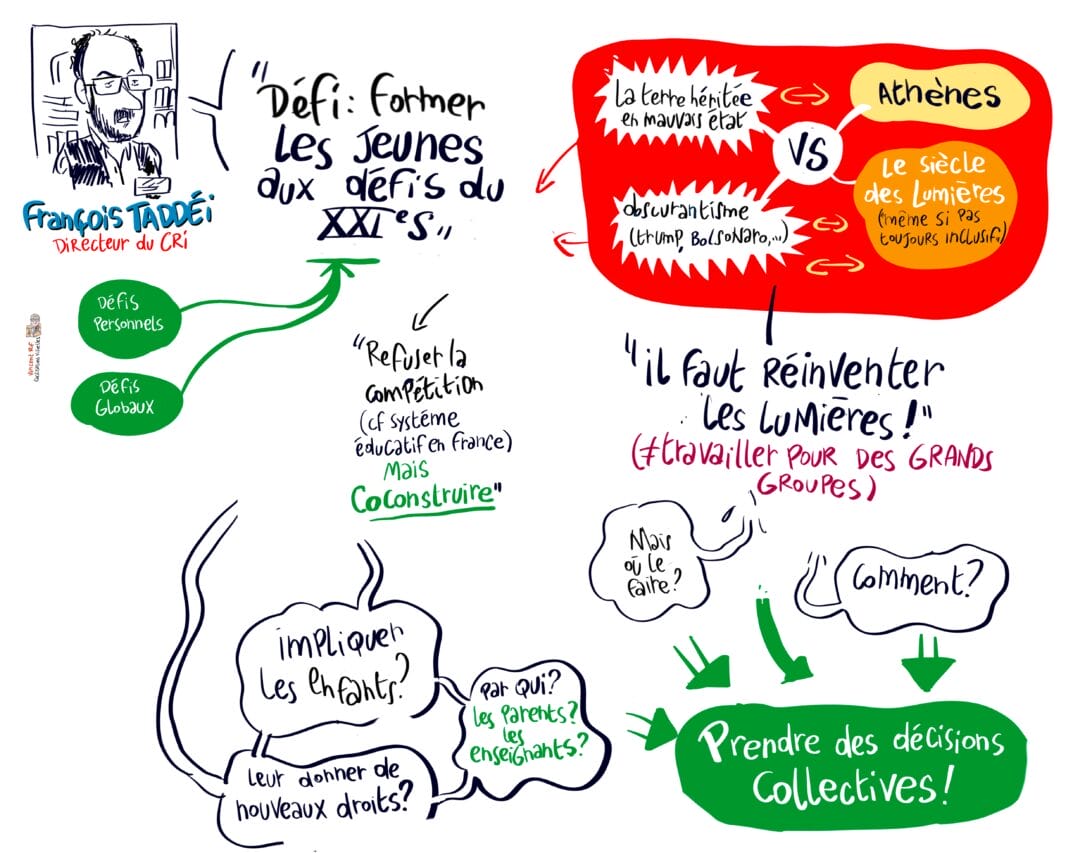 François TADDÉi
Directeur du CRi
"Défi: former
Les Jeunes
aux défis du
XXIes"
Défis
Personnels
Défis
Globaux
"Refuser la
compétition
(cf système
éducatif en france)
Mais
Coconstruire"
La terre héritée
en mauvais état
VS
Athènes
obscurantisme
(trump, Bolsonaro,...)
Le siècle
des Lumières
(même si pas
toujours inclusifs)
"il faut Réinventer
Les Lumières!"
(≠travailler pour des GRANDS
GROUPES)
Mais
où le
faire?
Comment?
impliquer
Les enfants?
Par Qui?
Les Parents?
les
enseignants?
Leur donner de
nouveaux droits?
Prendre des décisions
Collectives!